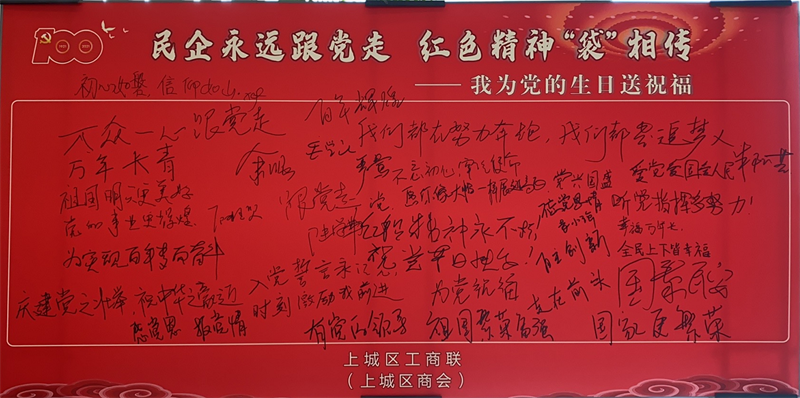 100
民企永远跟党走 红色精神“袋”相传
——我为党的生日送祝福
初心如磐，信仰如山
百年辉煌
万众一心 跟党走
我们都在努力奔跑，我们都是追梦人
万年长青
不忘初心，牢记使命
爱党爱国爱人民
祖国明天更美好
跟党走
党兴国盛
感党恩情
听党指挥多努力！
党的事业更辉煌
红船精神永不灭
幸福万年长
全民上下皆幸福
为实现百年梦而奋斗
入党誓言永记
祝党节日快乐！
自主创新
庆建党之壮举，祝中华之
时刻激励我前进
为党统领
走在前头
国泰民安
感党恩 报党情
有党的领导 祖国繁荣富强
国家更繁荣
上城区工商联
（上城区商会）